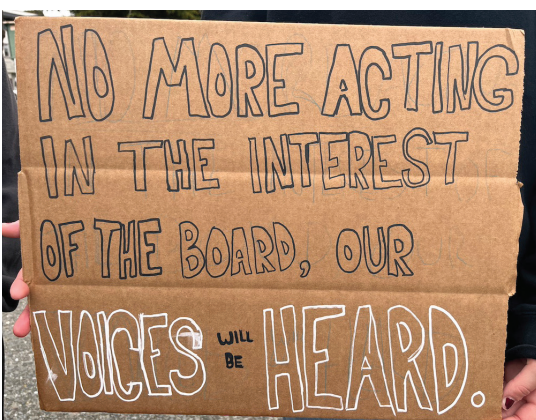 NO MORE ACTING
IN THE INTEREST
OF THE BOARD, OUR
VOICES WILL BE HEARD.